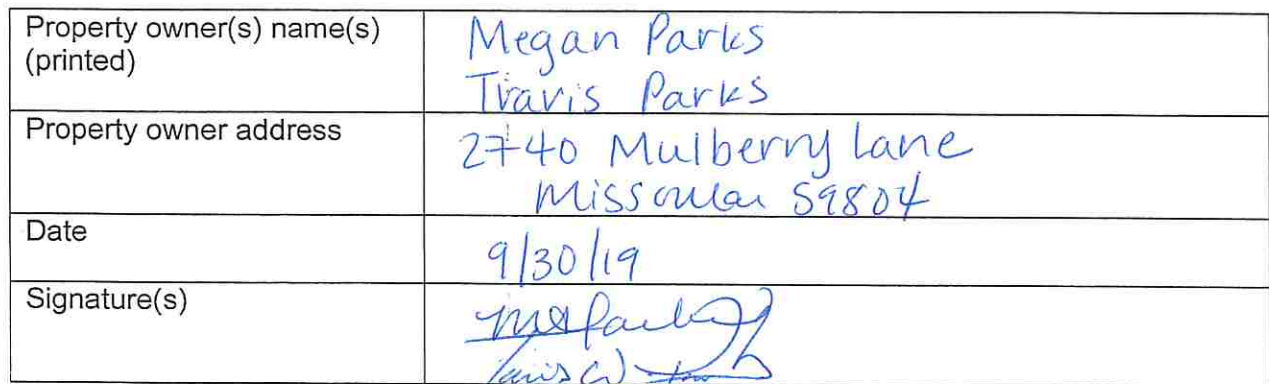 Property owner(s) name(s)
(printed)
Megan Parks
Travis Parks
Property owner address
2740 Mulberry Lane
Missoula 59804
Date
9/30/19
Signature(s)